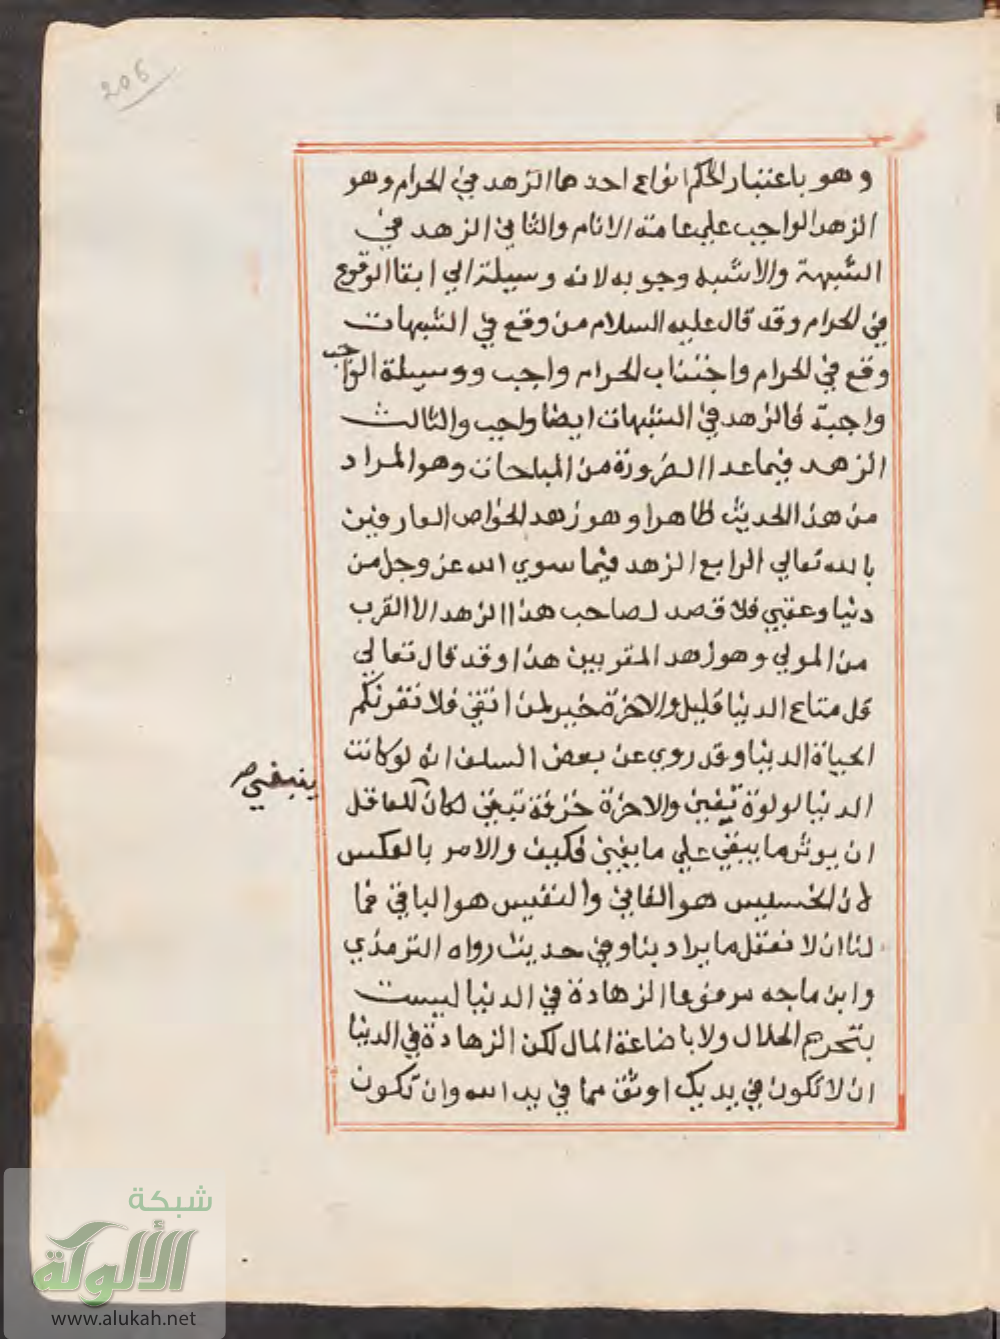 206
وهو باعتبار الحكم انواع احدها الزهد في الحرام وهو
الزهد الواجب علي عامة الانام والثاني الزهد في
الشبهة والاشبه وجوبه لانه وسيلة الي ابقا الوقوع
في الحرام وقد قال عليه السلام من وقع في الشبهات
وقع في الحرام واجتناب الحرام واجب ووسيلة الواجب
واجبة فالزهد في الشبهات ايضا واجب والثالث
الزهد فيما عدا الضرورة من المباحات وهو المراد
من هذا الحديث ظاهرا وهو زهد الخواص العارفين
بالله تعالي الرابع الزهد فيما سوي الله عز وجل من
دنيا وعقبي فلا قصد لصاحب هذا الزهد الا القرب
من المولي وهو زهد المقربين هذا وقد قال تعالي
قل متاع الدنيا قليل والاخرة خير لمن اتقي فلا تغرنكم
الحياة الدنيا وقد روي عن بعض السلف انه لو كانت
الدنيا لولوة تفني والاخرة خزفة تبقي لكان للعاقل
ينبغي صح
ان يوثر ما يبقي علي ما يفني فكيف والامر بالعكس
لان الخسيس هو الفاني والنفيس هو الباقي فما
لنا ان لا نعقل ما يراد بنا وفي حديث رواه الترمذي
وابن ماجه مرفوعا الزهادة في الدنيا ليست
بتحريم الحلال ولا باضاعة المال لكن الزهادة في الدنيا
ان لا تكون في يديك اوثق مما في يد الله وان تكون
شبكة
الألوكة
www.alukah.net